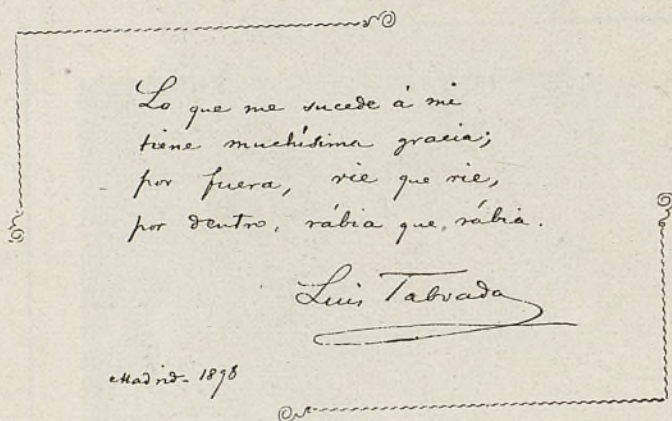 Lo que me sucede á mi
tiene muchísima gracia;
por fuera, rie que rie,
por dentro, rábia que, rábia.
Luis Taboada
Madrid- 1898